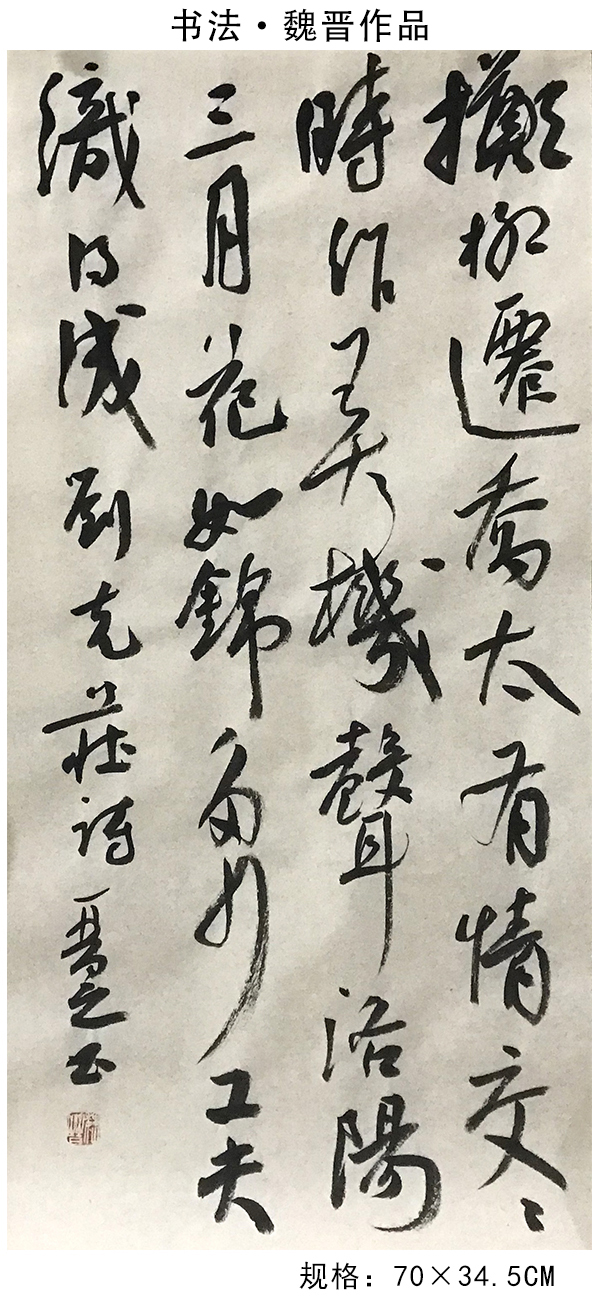 书法·魏晋作品
擲柳遷喬太有情交〻
時作弄機聲洛陽
三月花如錦多少工夫
織得成劉克莊詩晉之書
规格：70×34.5CM